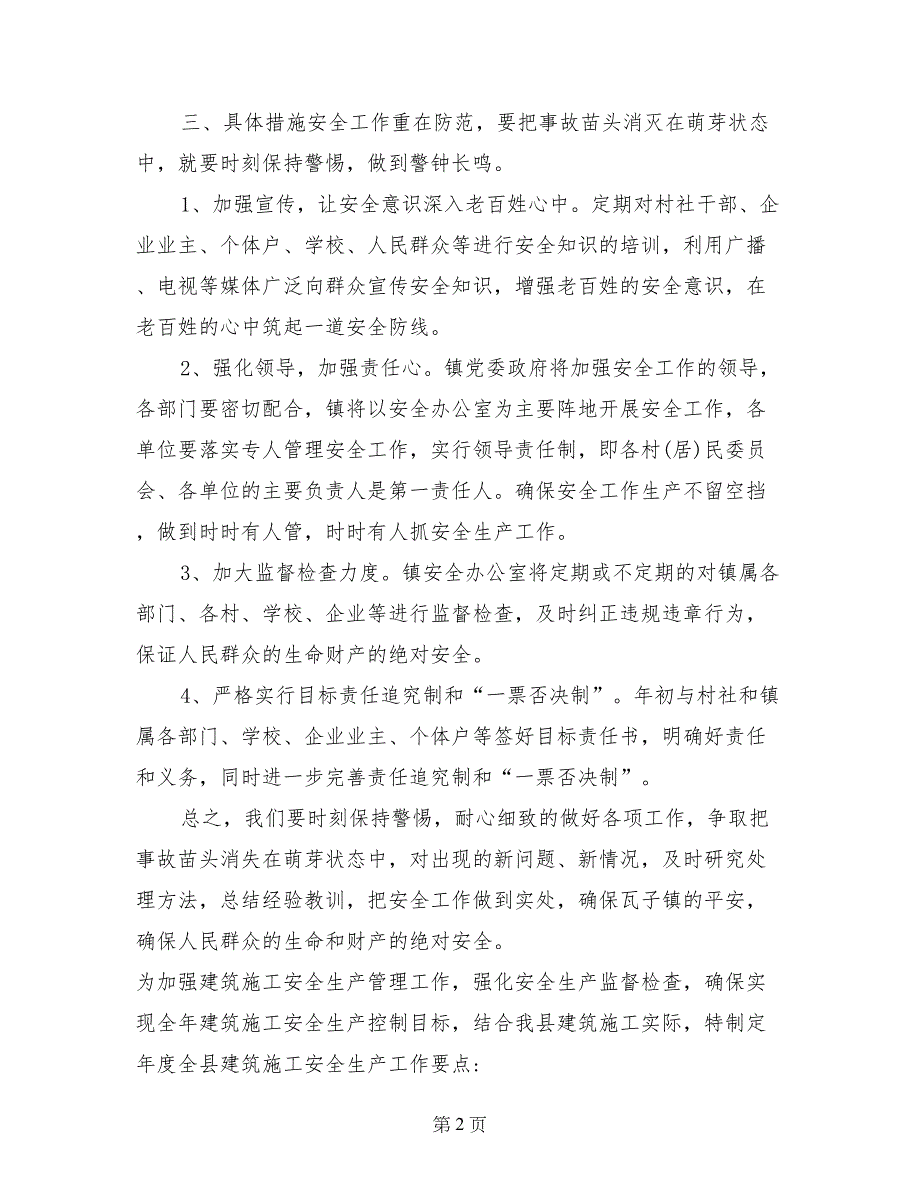 三、具体措施安全工作重在防范，要把事故苗头消灭在萌芽状态
中，就要时刻保持警惕，做到警钟长鸣。
1、加强宣传，让安全意识深入老百姓心中。定期对村社干部、企
业业主、个体户、学校、人民群众等进行安全知识的培训，利用广播
、电视等媒体广泛向群众宣传安全知识，增强老百姓的安全意识，在
老百姓的心中筑起一道安全防线。
2、强化领导，加强责任心。镇党委政府将加强安全工作的领导，
各部门要密切配合，镇将以安全办公室为主要阵地开展安全工作，各
单位要落实专人管理安全工作，实行领导责任制，即各村(居)民委员
会、各单位的主要负责人是第一责任人。确保安全工作生产不留空挡
，做到时时有人管，时时有人抓安全生产工作。
3、加大监督检查力度。镇安全办公室将定期或不定期的对镇属各
部门、各村、学校、企业等进行监督检查，及时纠正违规违章行为，
保证人民群众的生命财产的绝对安全。
4、严格实行目标责任追究制和“一票否决制”。年初与村社和镇
属各部门、学校、企业业主、个体户等签好目标责任书，明确好责任
和义务，同时进一步完善责任追究制和“一票否决制”。
总之，我们要时刻保持警惕，耐心细致的做好各项工作，争取把
事故苗头消失在萌芽状态中，对出现的新问题、新情况，及时研究处
理方法，总结经验教训，把安全工作做到实处，确保瓦子镇的平安，
确保人民群众的生命和财产的绝对安全。
为加强建筑施工安全生产管理工作，强化安全生产监督检查，确保实
现全年建筑施工安全生产控制目标，结合我县建筑施工实际，特制定
年度全县建筑施工安全生产工作要点:
第 2 页